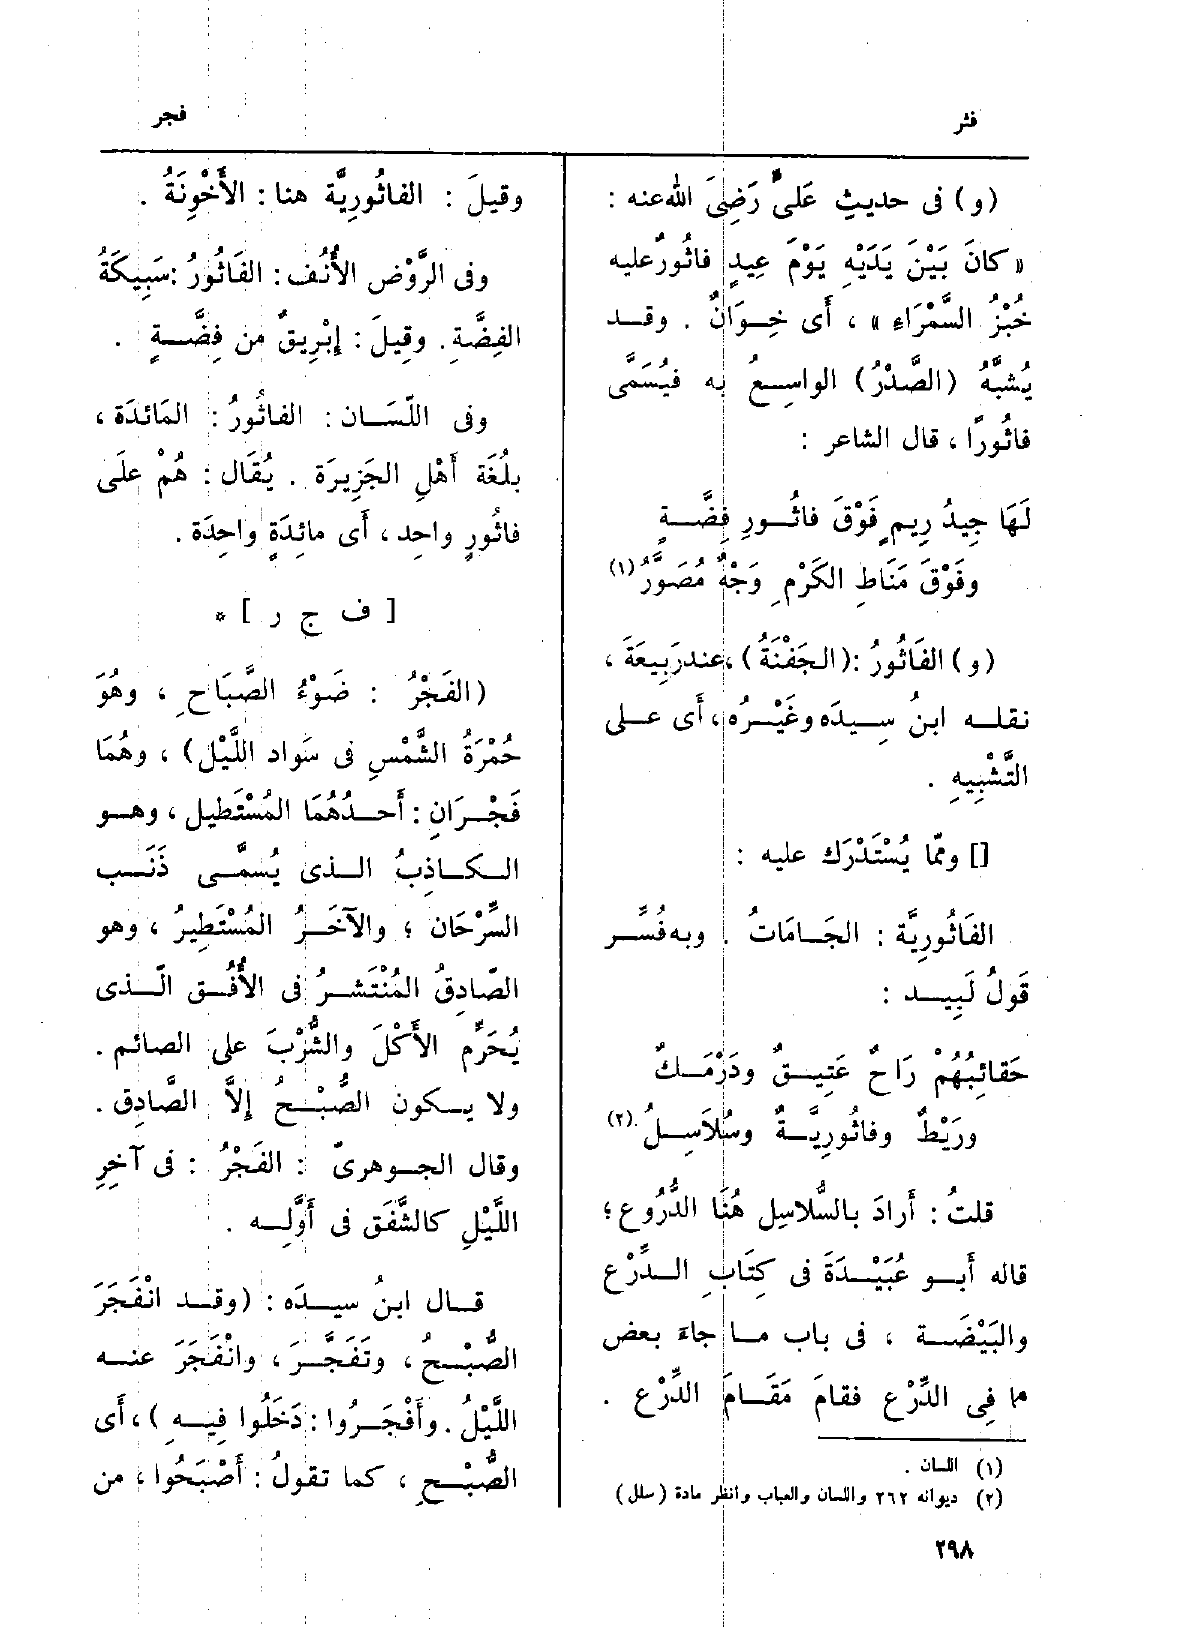 فثر
فجر
(و) فى حديثِ عَلىٍّ رَضِىَ اللهُ عنه :
« كانَ بَيْنَ يَدَيْهِ يَوْمَ عِيدٍ فاثُورٌ عليه
خُبْزُ السَّمْرَاءِ » ، أَى خِـوَانٌ . وقـد
يُشبَّهُ (الصَّدْرُ) الواسِـعُ به فيُسَمَّى
فاثُورًا ، قال الشاعر :
لَهَا جِيدُ رِيمٍ فَوْقَ فاثُـورِ فِضَّـةٍ
وفَوْقَ مَنَاطِ الكَرْمِ وَجْهٌ مُصَوَّرُ (١)
(و) الفَاثُورُ : (الجَفْنَةُ) ، عند رَبِيعَةَ ،
نقلـه ابنُ سِيـدَه وغَيْرُه ، أَى عـلى
التَّشْبِيهِ .
[] ومّا يُسْتَدْرَك عليه :
الفَاثُورِيَّة : الجَـامَاتُ . وبه فُسِّـر
قَولُ لَبِيـد :
حَقائِبُهُمْ رَاحٌ عَتِيـقٌ ودَرْمَـكٌ
ورَيْطٌ وفاثُورِيَّـةٌ وسُلاَسِـلُ (٢)
قلتُ : أَرادَ بالسُّلاسِل هُنَا الدُّرُوع ؛
قاله أَبـو عُبَيْـدَةَ فى كِتَابِ الـدِّرْع
والبَيْضَـة ، فى باب مـا جاءَ بعض
ما فِى الدِّرْع فقامَ مَقَـامَ الدِّرْع .
(١) اللسان .
(٢) ديوانه ٢٦٢ واللسان والعباب وانظر مادة (سلل)
وقيلَ : الفاثُورِيَّة هنا : الأَخْوِنَةُ .
وفى الرَّوْض الأُنُف : الفَاثُورُ : سَبِيكَةُ
الفِضَّةِ . وقِيلَ : إِبْرِيقٌ من فِضَّـةٍ .
وفى اللّسَـان : الفاثُورُ : المَائدَة ،
بلُغَة أَهْلِ الجَزِيرَة . يُقَال : هُمْ علَى
فاثُورٍ واحِد ، أَى مائِدَةٍ واحِدَة .
[ ف ج ر ] *
(الفَجْرُ : ضَوْءُ الصَّبَاحِ ، وهُوَ
حُمْرَةُ الشَّمْسِ فى سَواد اللَّيْل) ، وهُمَا
فَجْـرَانِ : أَحـدُهُمَا المُسْتَطِيل ، وهـو
الـكـاذِبُ الـذى يُسمَّـى ذَنَـب
السِّرْحَان ؛ والآخَـرُ المُسْتَطِيرُ ، وهو
الصَّادِقُ المُنْتَشـرُ فى الأُفُـق الَّـذى
يُحَرِّم الأَكْلَ والشُّرْبَ على الصائم .
ولا يـكون الصُّبْـحُ إِلاَّ الصَّادِق .
وقال الجـوهرىّ : الفَجْرُ : فى آخِرِ
اللَّيْلِ كالشَّفَق فى أَوَّلِـه .
قـال ابنُ سِيـدَه : (وقـد انْفَجَرَ
الصُّبْـحُ ، وتَفَجَّـرَ ، وانْفَجَرَ عنـه
اللَّيْلُ . وأَفْجَـرُوا : دَخَلُوا فِيـهِ ) ، أَى
الصُّبْـحِ ، كما تقولُ : أَصْبَحُوا ، من
٢٩٨